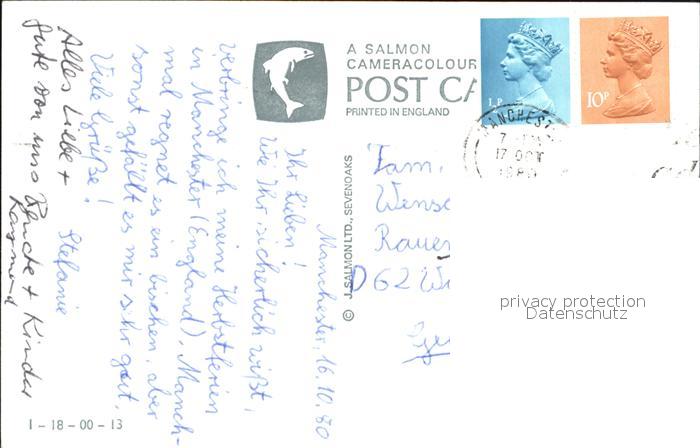 A SALMON
CAMERACOLOUR
POST CA
PRINTED IN ENGLAND
© J. SALMON LTD., SEVENOAKS
½P
10P
MANCHEST
7
17 OCT
1980
Manchester, 16.10.80
Ihr Lieben!
Wie Ihr sicherlich wißt,
verbringe ich meine Herbstferien
in Manchester (England). Manch-
mal regnet es ein bischen, aber
sonst gefällt es mir sehr gut.
Viele Grüße!
Stefanie
Alles Liebe +
Gute von uns
+ Kinder
Fam.
Wense
Rauen
D 62 Wi
privacy protection
Datenschutz
1-18-00-13